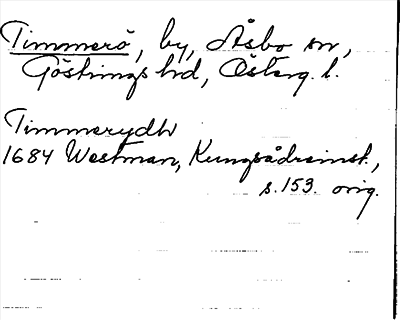 Timmerö, by, Åsbo sn,
Göstrings hd, Österg. l.
Timmerydh
1684 Westman, Kungsådreinst.,
s. 153. orig.